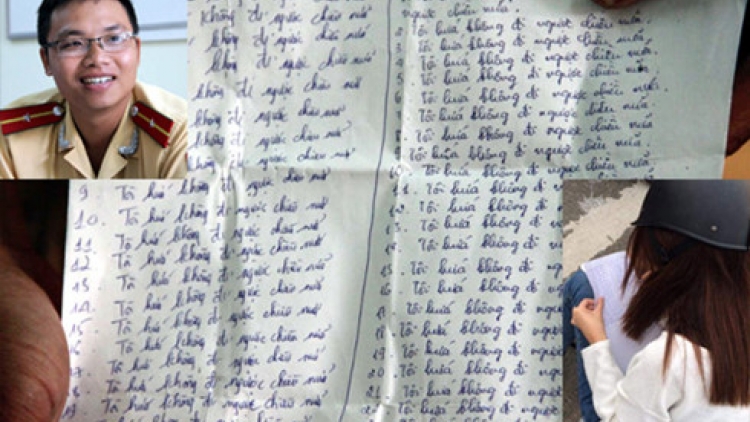 không đi ngược chiều nữ
không đi ngược chiều nữ
không đi ngược chiều nữ
không đi ngược chiều nữ
không đi ngược chiều nữ
không đi ngược chiều nữ
không đi ngược chiều nữ
9. Tô hứ không đi ngược chiều nữ
10. Tô hứ không đi ngược chiều nữ
11. Tô hứ không đi ngược chiều nữ
12. Tô hứ không đi ngược chiều nữ
13. Tô hứ không đi ngược chiều nữ
14. Tô hứ không đi ngược chiều nữ
15. Tô hứ không đi ngược chiều nữ
Tô hứ không đi ngược chiều nữ
Tô hứ không đi ngược chiều nữ
Tô hứ không đi ngược chiều nữ
chiều nữa.
2. Tôi hứa không đi ngược chiều nữa.
3. Tôi hứa không đi ngược chiều nữa.
4. Tôi hứa không đi ngược chiều nữa.
5. Tôi hứa không đi ngược chiều nữa.
6. Tôi hứa không đi ngược chiều nữa.
Tôi hứa không đi ngược chiều nữa.
Tôi hứa không đi ngược chiều nữa.
Tôi hứa không đi ngược chiều nữa.
10. Tôi hứa không đi ngược chiều nữa.
11. Tôi hứa không đi
12. Tôi hứa không đi
13. Tôi hứa không đi
14. Tôi hứa không đi
15. Tôi hứa không đi
16. Tôi hứa không đi
17. Tôi hứa không đi
18. Tôi hứa không đi
19. Tôi hứa không đi
20. Tôi hứa không đi
21. Tôi hứa không đi
Tôi hứa không đi